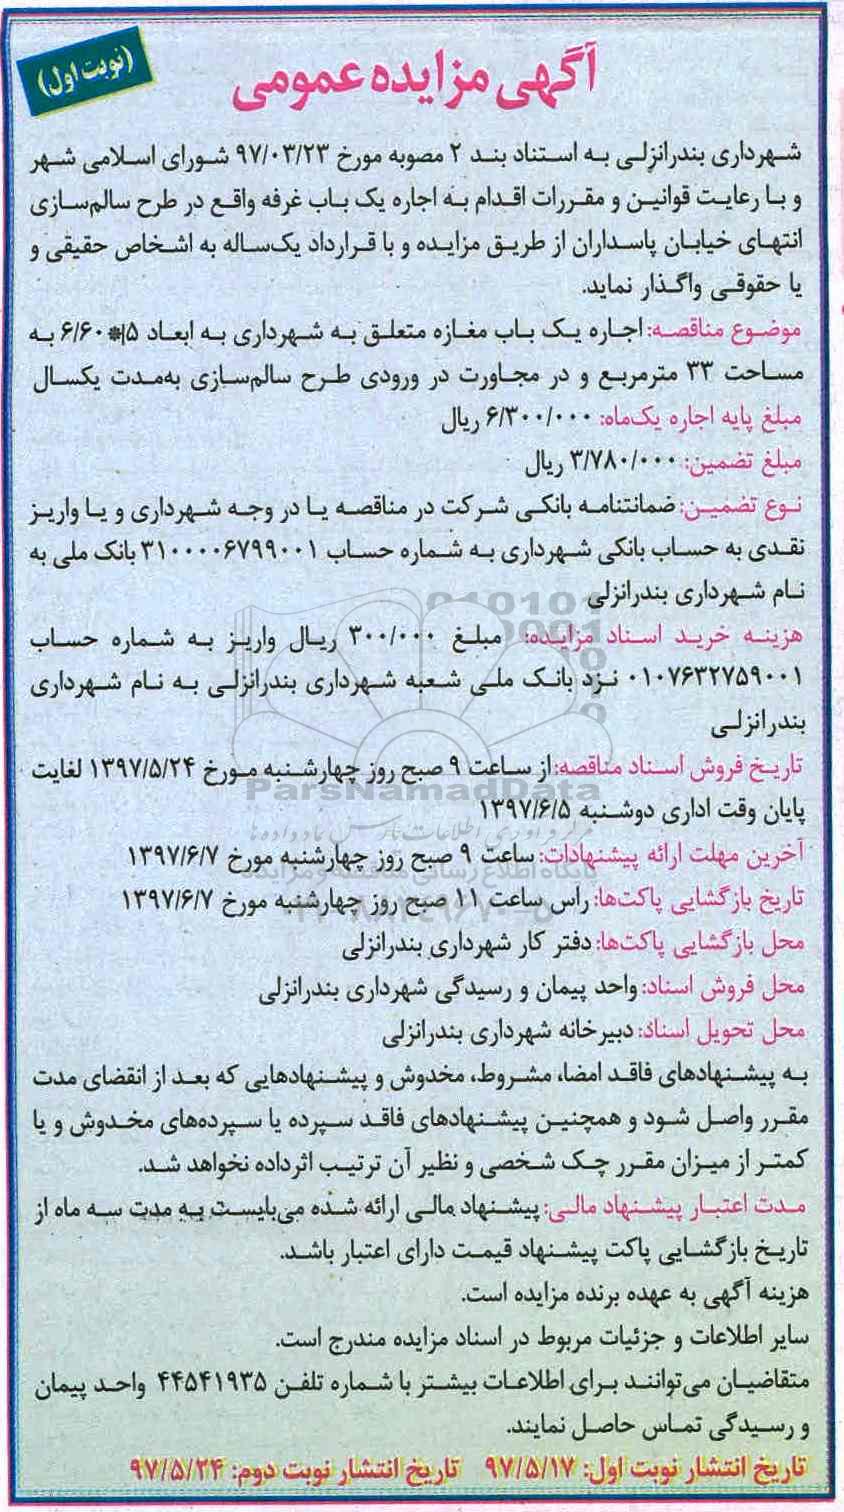 (نوبت اول)
آگهی مزایده عمومی
شهرداری بندرانزلی به استناد بند ۲ مصوبه مورخ ۹۷/۰۳/۲۳ شورای اسلامی شهر
و با رعایت قوانین و مقررات اقدام به اجاره یک باب غرفه واقع در طرح سالم‌سازی
انتهای خیابان پاسداران از طریق مزایده و با قرارداد یک‌ساله به اشخاص حقیقی و
یا حقوقی واگذار نماید.
موضوع مناقصه: اجاره یک باب مغازه متعلق به شهرداری به ابعاد ۵*۶/۶۰ به
مساحت ۳۳ مترمربع و در مجاورت در ورودی طرح سالم‌سازی به‌مدت یکسال
مبلغ پایه اجاره یک‌ماه: ۶/۳۰۰/۰۰۰ ریال
مبلغ تضمین: ۳/۷۸۰/۰۰۰ ریال
نوع تضمین: ضمانتنامه بانکی شرکت در مناقصه یا در وجه شهرداری و یا واریز
نقدی به حساب بانکی شهرداری به شماره حساب ۳۱۰۰۰۰۶۷۹۹۰۰۱ بانک ملی به
نام شهرداری بندرانزلی
هزینه خرید اسناد مزایده: مبلغ ۳۰۰/۰۰۰ ریال واریز به شماره حساب
۰۱۰۷۶۳۲۷۵۹۰۰۱ نزد بانک ملی شعبه شهرداری بندرانزلی به نام شهرداری
بندرانزلی
تاریخ فروش اسناد مناقصه: از ساعت ۹ صبح روز چهارشنبه مورخ ۱۳۹۷/۵/۲۴ لغایت
پایان وقت اداری دوشنبه ۱۳۹۷/۶/۵
آخرین مهلت ارائه پیشنهادات: ساعت ۹ صبح روز چهارشنبه مورخ ۱۳۹۷/۶/۷
تاریخ بازگشایی پاکت‌ها: راس ساعت ۱۱ صبح روز چهارشنبه مورخ ۱۳۹۷/۶/۷
محل بازگشایی پاکت‌ها: دفتر کار شهرداری بندرانزلی
محل فروش اسناد: واحد پیمان و رسیدگی شهرداری بندرانزلی
محل تحویل اسناد: دبیرخانه شهرداری بندرانزلی
به پیشنهادهای فاقد امضا، مشروط، مخدوش و پیشنهادهایی که بعد از انقضای مدت
مقرر واصل شود و همچنین پیشنهادهای فاقد سپرده یا سپرده‌های مخدوش و یا
کمتر از میزان مقرر چک شخصی و نظیر آن ترتیب اثرداده نخواهد شد.
مدت اعتبار پیشنهاد مالی: پیشنهاد مالی ارائه شده می‌بایست به مدت سه ماه از
تاریخ بازگشایی پاکت پیشنهاد قیمت دارای اعتبار باشد.
هزینه آگهی به عهده برنده مزایده است.
سایر اطلاعات و جزئیات مربوط در اسناد مزایده مندرج است.
متقاضیان می‌توانند برای اطلاعات بیشتر با شماره تلفن ۴۴۵۴۱۹۳۵ واحد پیمان
و رسیدگی تماس حاصل نمایند.
تاریخ انتشار نوبت اول: ۹۷/۵/۱۷ تاریخ انتشار نوبت دوم: ۹۷/۵/۲۴
ParsNamadData